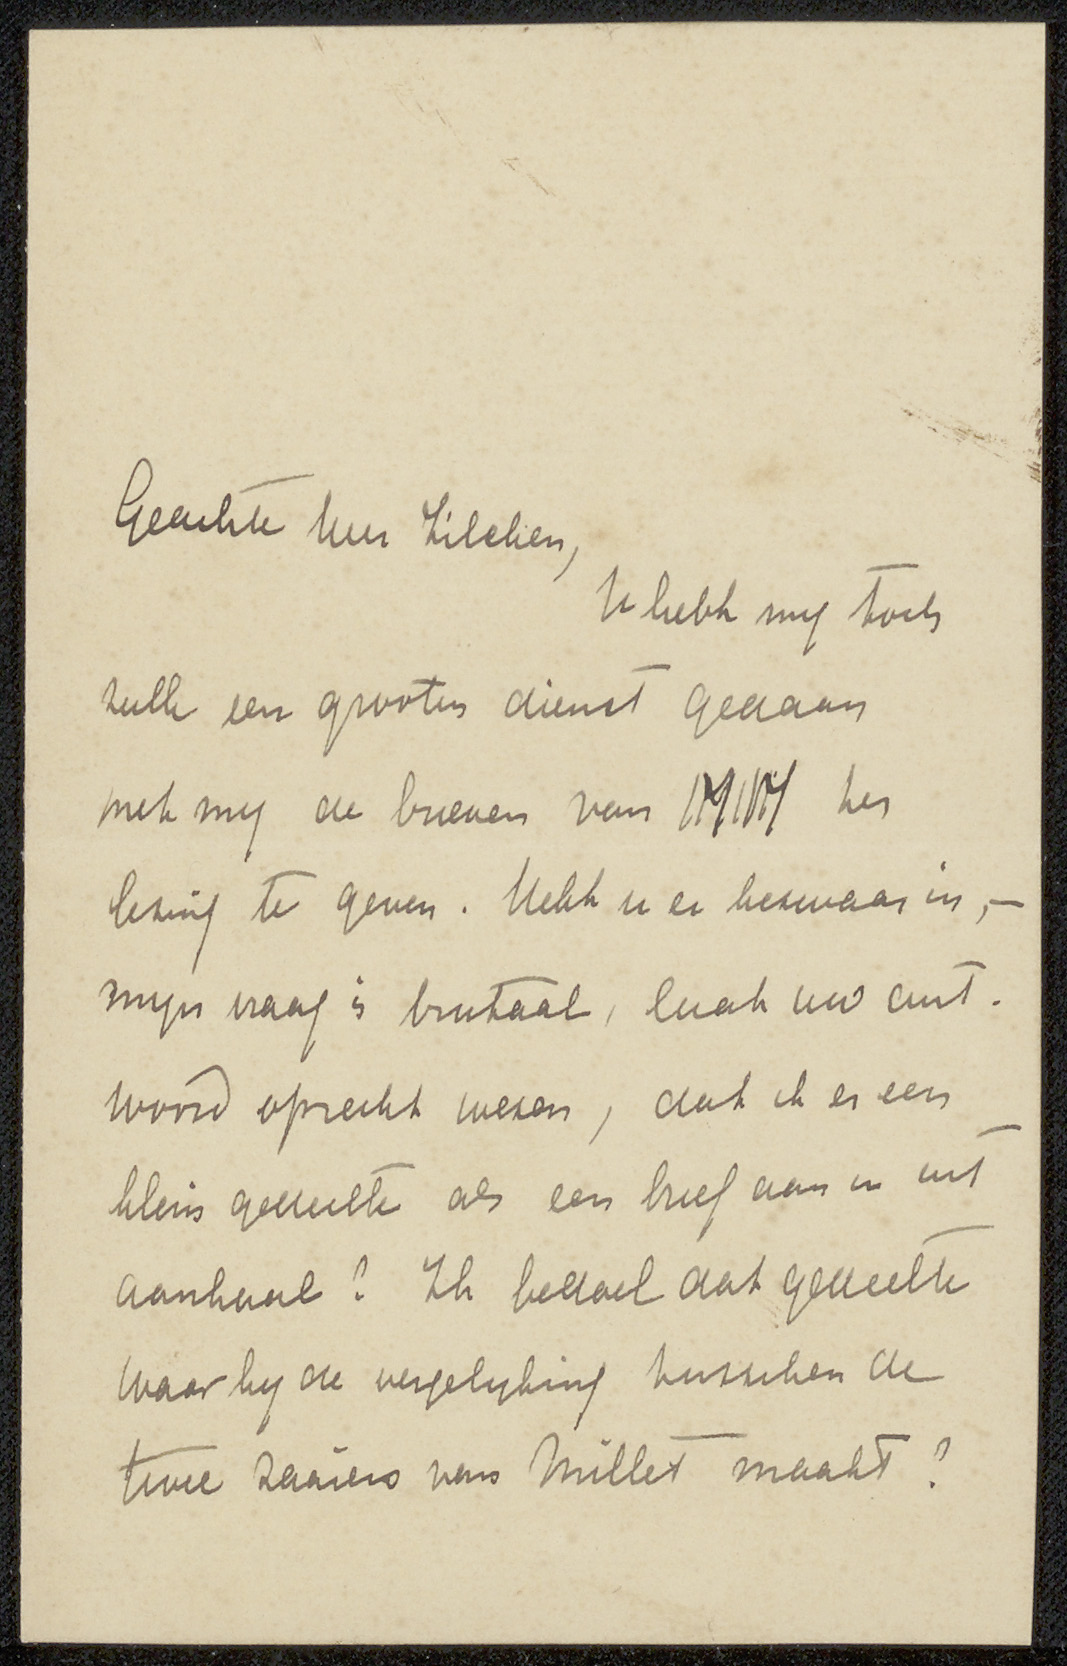 Geachte heer Zilcken,
U hebt my toch
zulk een grooten dienst gedaan
met my de brieven van ter
lezing te geven. Hebt u er bezwaar in, –
myn vraag is brutaal, laat uw ant-
woord oprecht wezen, dat ik er een
klein gedeelte als een brief aan u uit
aanhaal? Ik bedoel dat gedeelte
waar hy de vergelyking tusschen de
twee zaaiers van Millet maakt?